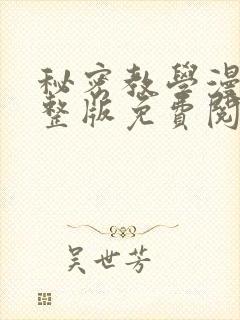 秘密教學漫
整版免費閱
吳世芳